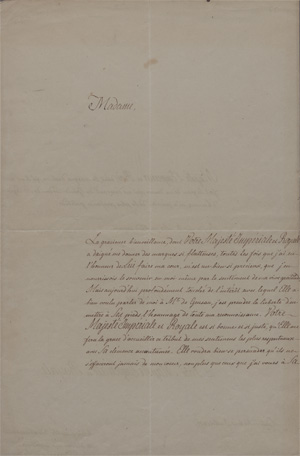 Madame,
La gracieuse bienveillance, dont Votre Majesté Impériale et Royale
a daigné me donner des marques si flatteuses, toutes les fois que j'ai eu
l'honneur de Lui faire ma cour, m'est un bien si précieux, que j'en
nourrissais le souvenir en mon coeur, par le sentiment de ma
Mais aujourd'hui profondément touché de l'intérêt avec lequel Elle a
bien voulu parler de moi à Mr. de j'ose prendre la liberté d'en
mettre à Ses pieds l'hommage de toute ma reconnaissance. Votre
Majesté Impériale et Royale est si bonne et si juste, qu'Elle me
fera la grace d'accueillir ce tribut de mes sentimens les plus respectueux
avec Sa clémence accoutumée. Elle voudra bien se persuader qu'ils ne
s'effaceront jamais de mon coeur, non plus que ceux que j'ai voués à Sa